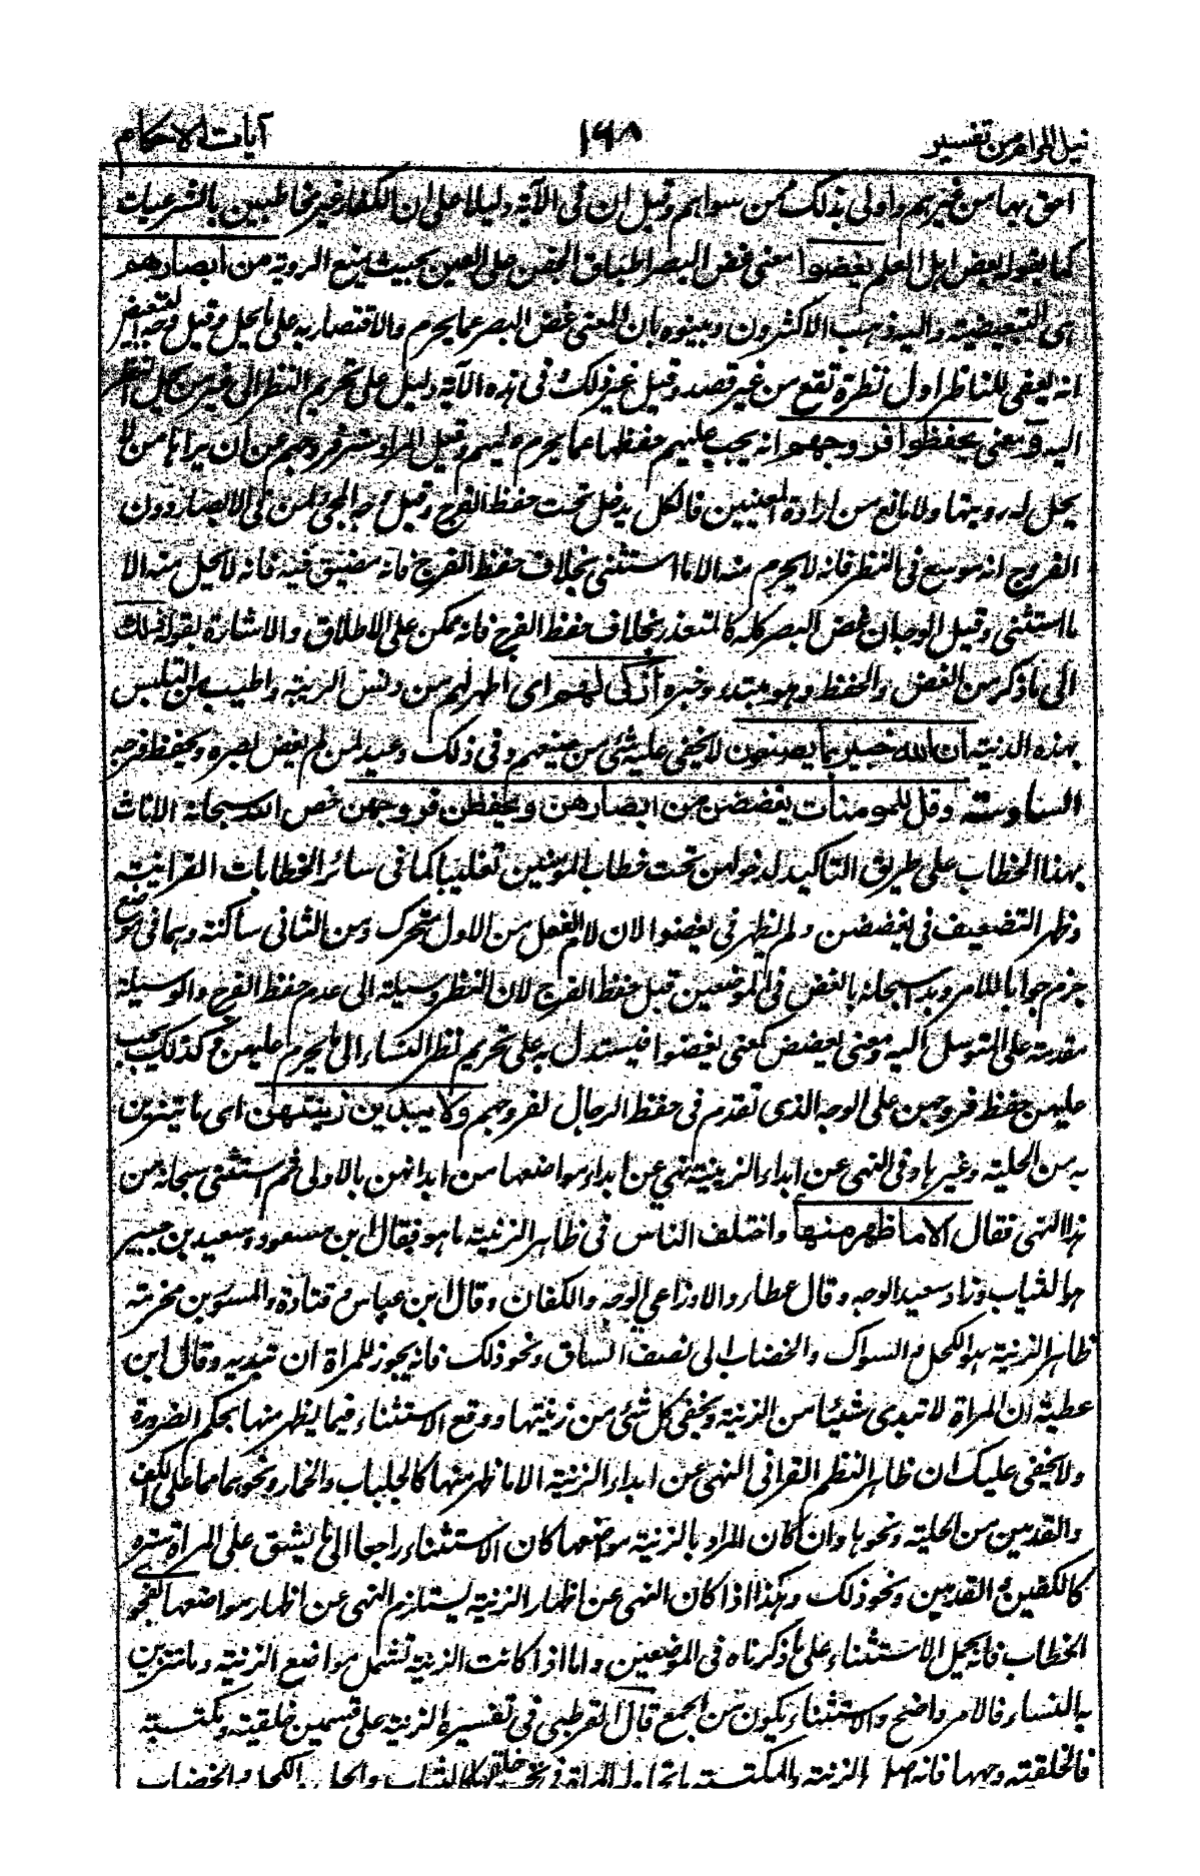 نيل المرام من تفسير ١٦٨ آيات الاحكام
احق بها من غيرهم واولى بذلك ممن سواهم وقيل ان فى الآية دليلا على ان الكفار غير مخاطبين بالشرعيات
كما يقوله بعض اهل العلم يغضوا معنى غض البصر اطباق الجفن على العين بحيث يمنع الروية من ابصارهم
هى التبعيضية واليه ذهب الاكثرون وبينوه بان المعنى غض البصر عما يحرم والاقتصار به على ما يحل وقيل وجه التبعيض
انه يعفى للناظر اول نظرة تقع من غير قصد وقيل غير ذلك وفى هذه الآية دليل على تحريم النظر الى غير من يحل النظر
اليه ومعنى يحفظوا فروجهم انه يجب عليهم حفظها عما يحرم عليهم وقيل المراد ستر فروجهم عن ان يراها من لا
يحل له رويتها ولا مانع من ارادة المعنيين فالكل يدخل تحت حفظ الفرج وقيل وجه المجئ بمن فى الابصار دون
الفروج انه موسع فى النظر فانه لا يحرم منه الا ما استثنى بخلاف حفظ الفرج فانه مضيق فيه فانه لا يحل منه الا
ما استثنى وقيل الوجه ان غض البصر كله كالمتعذر بخلاف حفظ الفرج فانه ممكن على الاطلاق والاشارة بقوله ذلك
الى ما ذكر من الغض والحفظ وهو مبتدء وخبره ازكى لهم اى اطهر لهم من دنس الريبة واطيب من التلبس
بهذه الدنية ان الله خبير بما يصنعون لا يخفى عليه شئ من صنعهم وفى ذلك وعيد لمن لم يغض بصره ويحفظ فرجه
السادسة وقل للمومنات يغضضن من ابصارهن ويحفظن فروجهن خص الله سبحانه الاناث
بهذا الخطاب على طريق التاكيد لدخولهن تحت خطاب المومنين تغليبا كما فى سائر الخطابات القرانية
وظهر التضعيف فى يغضضن ولم يظهر فى يغضوا لان لام الفعل من الاول متحرك ومن الثانى ساكنة وهما فى موضع
جزم جوابا للامر وبدء سبحانه بالغض فى الموضعين قبل حفظ الفرج لان النظر وسيلة الى عدم حفظ الفرج والوسيلة
مقدمة على المتوسل اليه ومعنى يغضضن كمعنى يغضوا فيستدل به على تحريم نظر النساء الى ما يحرم عليهن وكذلك يجب
عليهن حفظ فروجهن على الوجه الذى تقدم فى حفظ الرجال لفروجهم ولا يبدين زينتهن اى ما يتزين
به من الحلية وغيرها وفى النهى عن ابداء الزينة نهى عن ابداء مواضعها من ابدانهن بالاولى ثم استثنى سبحانه من
هذا النهى فقال الا ما ظهر منها واختلف الناس فى ظاهر الزينة ما هو فقال ابن مسعود وسعيد بن جبير
هو الثياب وزاد سعيد الوجه وقال عطاء والاوزاعى الوجه والكفان وقال ابن عباس وقتادة والمسور بن مخرمة
ظاهر الزينة هو الكحل والسواك والخضاب الى نصف الساق ونحو ذلك فانه يجوز للمراة ان تبديه وقال ابن
عطية ان المراة لا تبدى شيئا من الزينة وتخفى كل شئ من زينتها ووقع الاستثناء فيما يظهر منها بحكم الضرورة
ولا يخفى عليك ان ظاهر النظم القرانى النهى عن ابداء الزينة الا ما ظهر منها كالجلباب والخمار ونحوهما مما على الكف
والقدمين من الحلية ونحوها وان كان المراد بالزينة مواضعها كان الاستثناء راجعا الى ما يشق على المراة ستره
كالكفين والقدمين ونحو ذلك وهكذا اذا كان النهى عن اظهار الزينة يستلزم النهى عن اظهار مواضعها بفحوى
الخطاب فانه يحمل الاستثناء على ما ذكرناه فى الموضعين واما اذا كانت الزينة تشمل مواضع الزينة وما تتزين
به النساء فالامر واضح والاستثناء يكون من الجمع قال القرطبى فى تفسيره الزينة على قسمين خلقية ومكتسبة
فالخلقية وجهها فانه اصل الزينة والمكتسبة ما تحاوله المراة فى تحسين خلقها كالثياب والحلى والكحل والخضاب